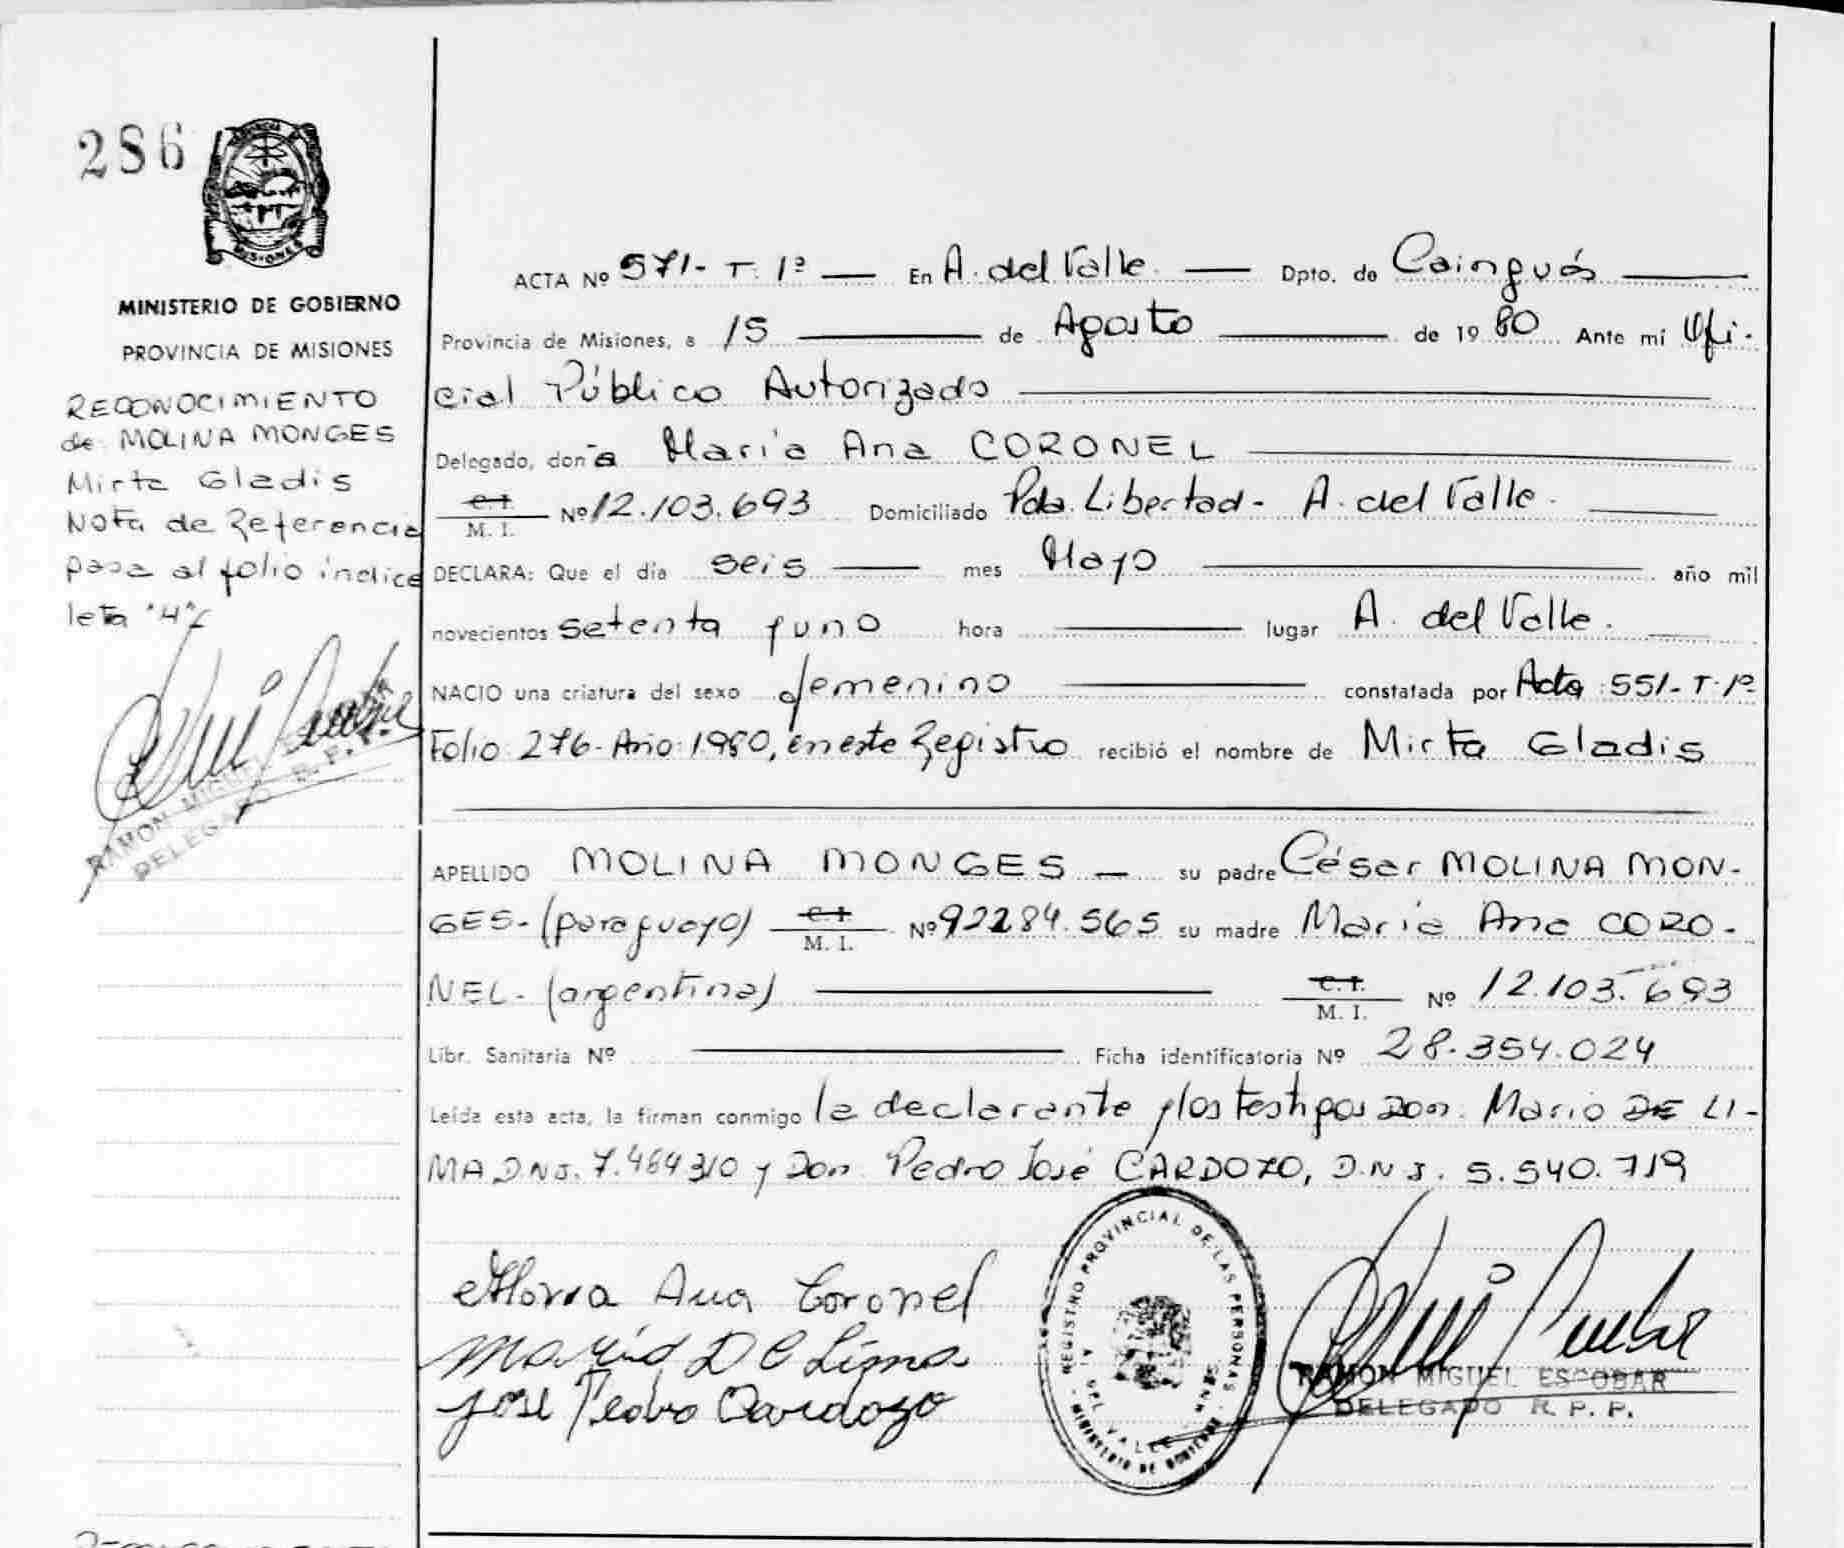 286
MISIONES
MINISTERIO DE GOBIERNO
PROVINCIA DE MISIONES
RECONOCIMIENTO
de MOLINA MONGES
Mirta Gladis
Nota de Referencia
pasa al folio índice
RAMON MIGUEL
DELEGADO R. P. P.
ACTA Nº 571- T. 1º — En A. del Valle — Dpto. de Cainguás
Provincia de Misiones, a 15 — de Agosto — de 1980 Ante mi Ofi-
cial Público Autorizado
Delegado, don~a María Ana CORONEL
C.I. M. I. Nº 12.103.693 Domiciliado Pda. Libertad- A. del Valle.
DECLARA: Que el día seis — mes Mayo — año mil
novecientos setenta y uno hora — lugar A. del Valle.
NACIO una criatura del sexo femenino — constatada por Acta: 551- T. 1º
Folio: 276- Año: 1980, en este Registro recibió el nombre de Mirta Gladis
APELLIDO MOLINA MONGES — su padre César MOLINA MON-
GES- (paraguayo) C.I. M. I. Nº 92284.565 su madre María Ana CORO-
NEL- (argentina) — C.I. M. I. Nº 12.103.693
Libr. Sanitaria Nº — Ficha identificatoria Nº 28.354.024
Leída esta acta, la firman conmigo la declarante y los testigos Don: Mario DE LI-
MA D.N.I. 7.464310 y Don Pedro José CARDOZO, D.N.I. 5.540.719
María Ana Coronel
Mario De Lima
José Pedro Cardozo
REGISTRO PROVINCIAL DE LAS PERSONAS
A. DEL VALLE
MINISTERIO DE GOBIERNO
RAMON MIGUEL ESCOBAR
DELEGADO R. P. P.